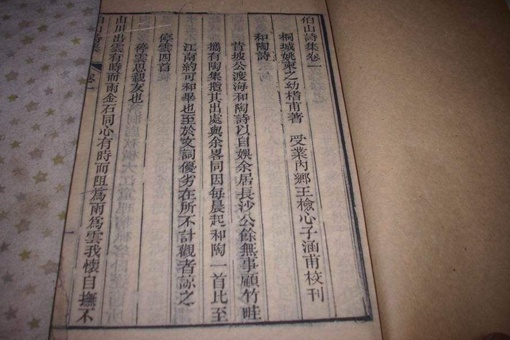 伯山詩集卷一
桐城姚柬之幼榰甫著　受業內鄉王檢心子涵甫校刊
和陶詩
昔坡公渡海和陶詩以自娛余居長沙公餘無事顧竹畦
攜有陶集撿其出處與余畧同因每晨起和陶一首比至
江南約可和畢也至於文詞優劣在所不計觀者諒之
停雲四首
停雲思親友也
山川出雲有時而雨金石同心有時而阻為雨為雲我懷自撫不